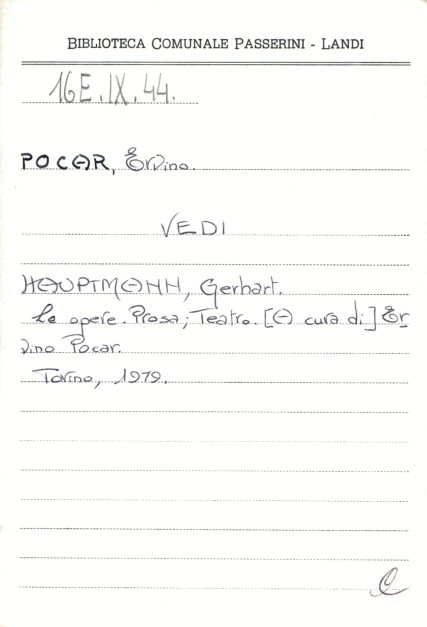 BIBLIOTECA COMUNALE PASSERINI - LANDI
16E.IX.44.
POCAR, Ervino.
VEDI
HAUPTMANN, Gerhart.
Le opere. Prosa; Teatro. [A cura di] Er
vino Pocar.
Torino, 1979.